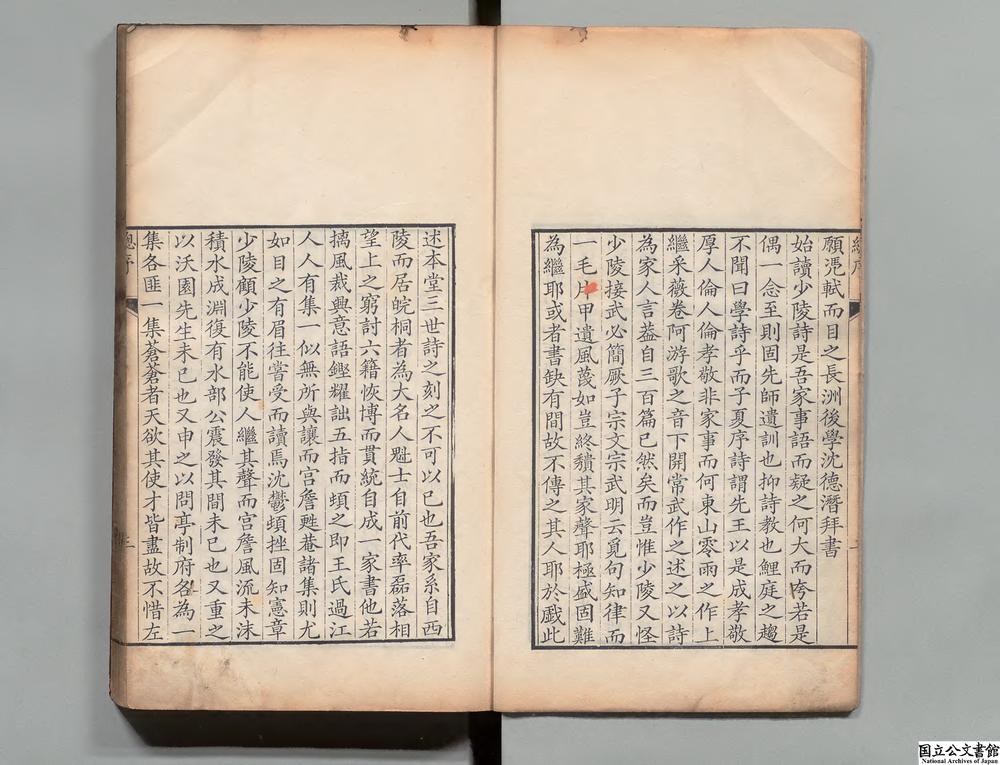 願凴軾而目之長洲後學沈德潛拜書
始讀少陵詩是吾家事語而疑之何大而夸若是
偶一念至則固先師遺訓也抑詩教也鯉庭之趨
不聞曰學詩乎而子夏序詩謂先王以是成孝敬
厚人倫人倫孝敬非家事而何東山零雨之作上
繼采薇卷阿游歌之音下開常武作之述之以詩
為家人言葢自三百篇已然矣而豈惟少陵又怪
少陵接武必簡厥子宗文宗武明云覓句知律而
一毛片甲遺風蔑如豈終穨其家聲耶極盛固難
為繼耶或者書缺有間故不傳之其人耶於戲此
述本堂三世詩之刻之不可以已也吾家系自西
陵而居皖桐者為大名人魁士自前代率磊落相
望上之窮討六籍恢博而貫統自成一家書他若
摛風裁興意語鏗耀詘五指而頓之即王氏過江
人人有集一似無所與讓而宮詹甦菴諸集則尤
如目之有眉往嘗受而讀焉沈鬱頓挫固知憲章
少陵顧少陵不能使人繼其聲而宮詹風流未沬
積水成淵復有水部公震發其間未已也又重之
以沃園先生未已也又申之以問亭制府各為一
集各匪一集蒼蒼者天欲其使才皆盡故不惜左
總序
三
国立公文書館
National Archives of Japan